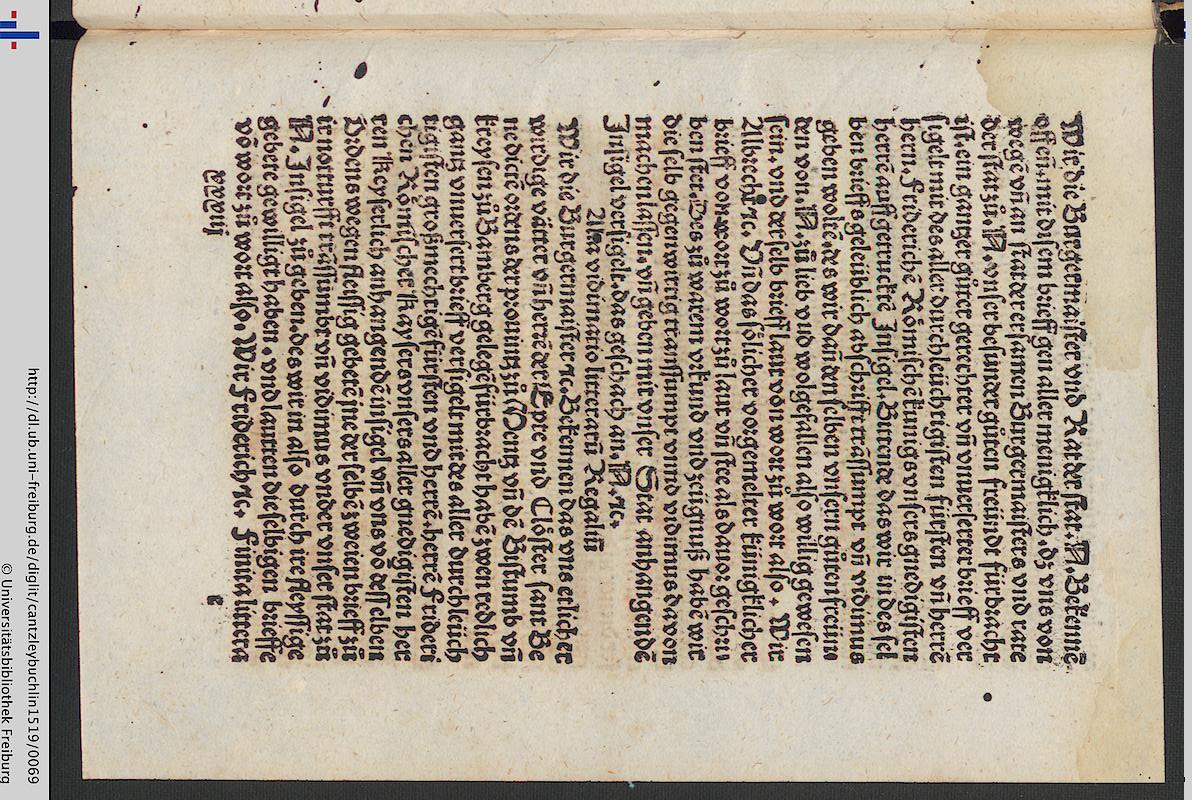 Wir die Burgermaister vnd Rat der stat. N. Bekennē
offen. mit disem brieff gen allermenigklich. dz vns von
wegē vñ an stat der ersamen Burgermaisters vnd rate
der stat zů. N. vnser besunder gůten freündt fürbacht
ist. ein gantzer gůter gerechter vñ vnuerserter brieff ver
sigelt mit des aller durchleüchtigisten fürsten vñ herrē
hern. Friderichē Römischē künigs vnsers gnedigisten
herrē auffgetruckē Insigel. Bittende das wir in des sel
ben brieffs gleüblich abschrifft trāssumpt vñ vidimus
geben woltē. des wir dan den selben vnsern gůten freun
den von. N. zů lieb vnd wolgefallen also willig gewesen
sein. vnd der selb brieff laut von wort zů wort also. Wir
Albrecht ⁊c. Vñ das sölicher vorgemelter künigklicher
brieff von wort zů wort zů laut vñ stee als dauor geschri
ben stet. Des zů warem vrkund vnd zeügnuß habē wir
die selb gegenwirtig transsumpt vnnd vidimus dauon
machen lassen. vñ geben mit vnser Stat anhangendē
Insigel versigelt. das geschach an. N. ⁊c.
Alia vidimatio litterarū Regaliū
Wir die Burgermaister ⁊c. Bekennen das vns erlicher
wirdige väter vñ herrē der Epte vnd Clöster sant Be
nedicte ordens der pouintz zů Mentz vñ dē Bistumb vñ
kreysen zů Bamberg gelegē fürbracht habē zwen redlich
gantz vnuersert brieff versigelt mit des aller durchleüch
tigisten großmechtigē fürsten vnd herrē. herrē Frideri
chen Römischer Kaysers vnsers aller gnedigisten her
ren Keyserlich anhangendē insigel vñ vns vō desselben
Ordens wegen fleissig gebetē jne der selbē zweien brieff zů
ir notturfft trāssumbt vñ vidimus vnder vnser stat zů
N. Insigel zů geben. des wir in also durch ire fleyssige
gebete gewilligt haben. vnd lautten die selbigen brieffe
vō wort zů wort also. Wir Friderich ⁊c. Finita littera
e
http://dl.ub.uni-freiburg.de/diglit/cantzleybuchlin1519/0069
© Universitätsbibliothek Freiburg